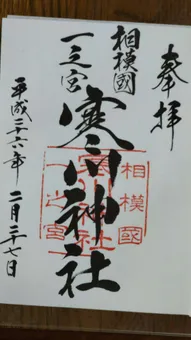 奉拝
相模國
一之宮
寒川神社
平成二十六年 二月二十七日
相模國
寒川神社
一之宮